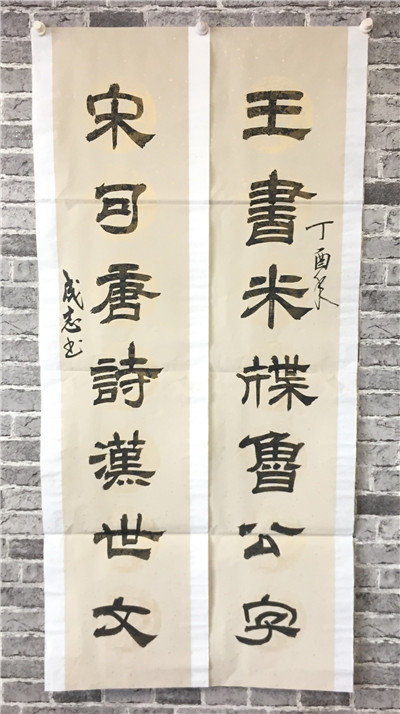 王書米牒魯公字
丁酉
宋司唐詩漢世文
成志书